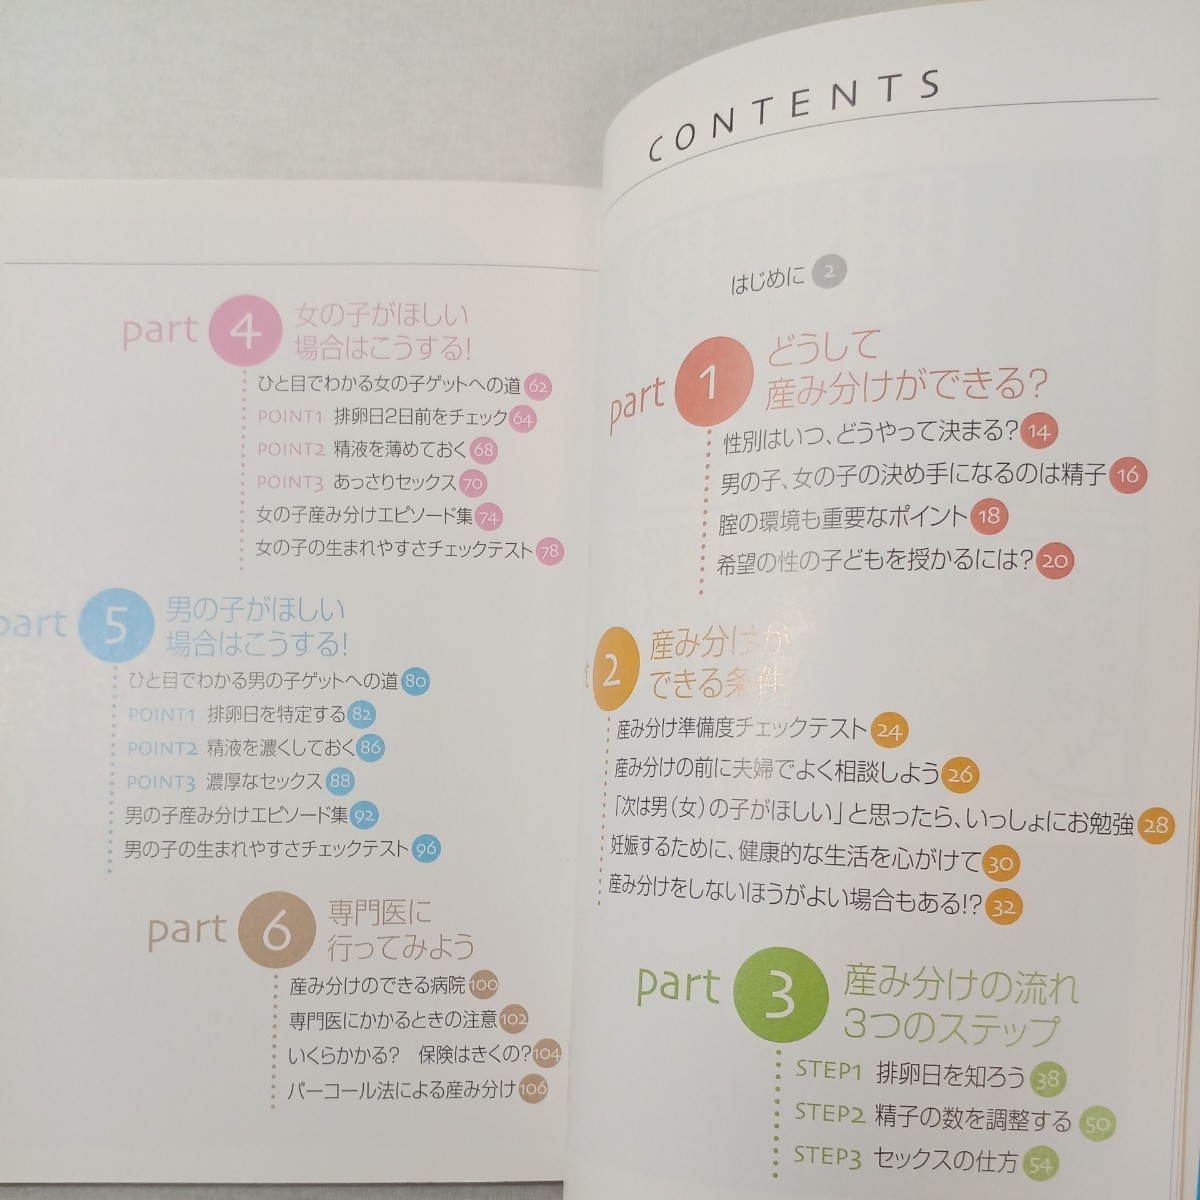 CONTENTS
はじめに 2
part 1 どうして
産み分けができる?
性別はいつ、どうやって決まる? 14
男の子、女の子の決め手になるのは精子 16
腟の環境も重要なポイント 18
希望の性の子どもを授かるには? 20
2 産み分けが
できる条件
産み分け準備度チェックテスト 24
産み分けの前に夫婦でよく相談しよう 26
「次は男(女)の子がほしい」と思ったら、いっしょにお勉強 28
妊娠するために、健康的な生活を心がけて 30
産み分けをしないほうがよい場合もある!? 32
part 3 産み分けの流れ
3つのステップ
STEP1 排卵日を知ろう 38
STEP2 精子の数を調整する 50
STEP3 セックスの仕方 54
part 4 女の子がほしい
場合はこうする!
ひと目でわかる女の子ゲットへの道 62
POINT1 排卵日2日前をチェック 64
POINT2 精液を薄めておく 68
POINT3 あっさりセックス 70
女の子産み分けエピソード集 74
女の子の生まれやすさチェックテスト 78
part 5 男の子がほしい
場合はこうする!
ひと目でわかる男の子ゲットへの道 80
POINT1 排卵日を特定する 82
POINT2 精液を濃くしておく 86
POINT3 濃厚なセックス 88
男の子産み分けエピソード集 92
男の子の生まれやすさチェックテスト 96
part 6 専門医に
行ってみよう
産み分けのできる病院 100
専門医にかかるときの注意 102
いくらかかる? 保険はきくの? 104
パーコール法による産み分け 106